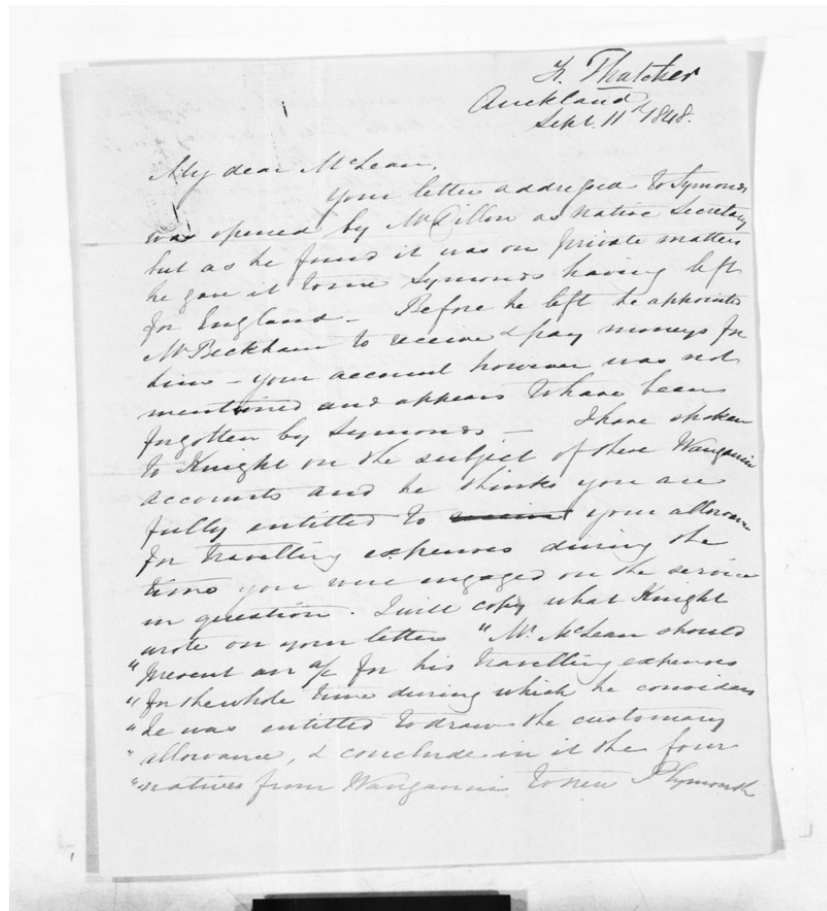 F. Thatcher
Auckland
Sept. 11th 1848.
My dear McLean,
Your letter addressed to Symonds
was opened by Mr Dillon as Native Secretary
but as he found it was on private matters
he gave it to me Symonds having left
for England - Before he left he appointed
Mr Beckham to receive & pay moneys for
him - your account however was not
mentioned and appears to have been
forgotten by Symonds - I have spoken
to Knight on the subject of these Wanganui
accounts and he thinks you are
fully entitled to your allowance
for travelling expenses during the
time you were engaged on the service
in question. I will copy what Knight
wrote on your letter "Mr McLean should
"present an a/c for his travelling expenses
"for the whole time during which he considers
"he was entitled to draw the customary
"allowance, & conclude in it the four
"natives from Wanganui to New Plymouth